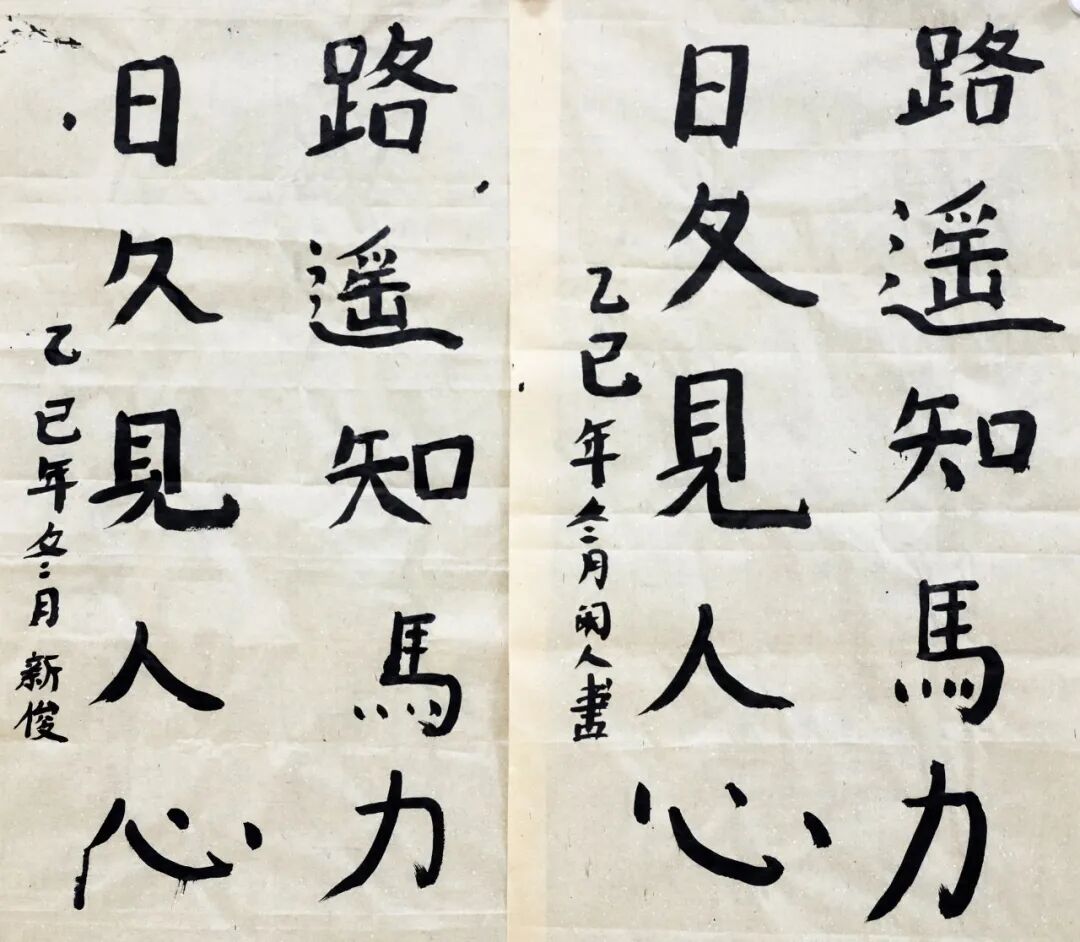 路遥知馬力
日久見人心
乙巳年冬月闲人書
路遥知馬力
日久見人心
乙巳年冬月新俊